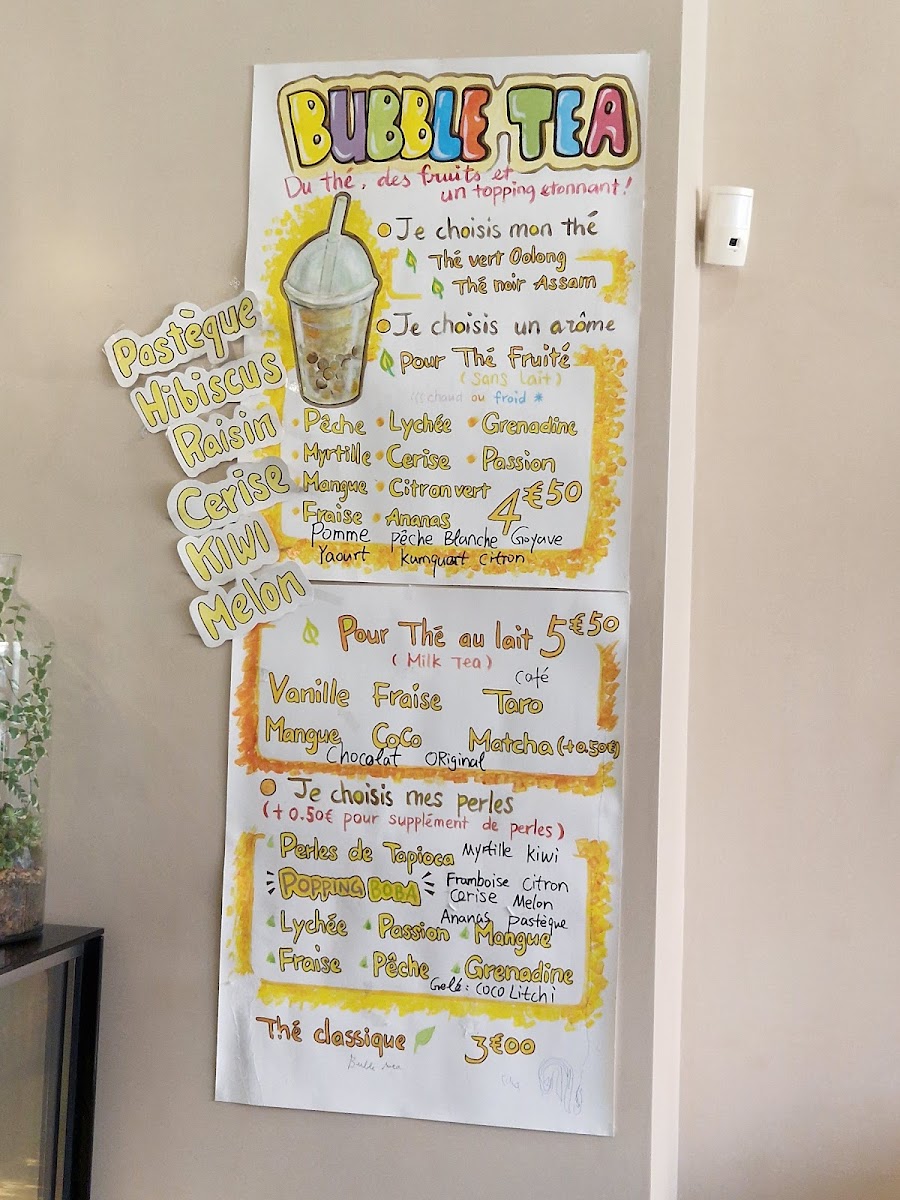 BUBBLE TEA
Du thé, des fruits et
un topping etonnant!
Je choisis mon thé
Thé vert Oolong
Thé noir Assam
Je choisis un arôme
Pour Thé Fruité
(sans lait)
chaud ou froid *
Pastèque
Hibiscus
Raisin
Cerise
Kiwi
Melon
Pêche Lychée Grenadine
Myrtille Cerise Passion
Mangue Citron vert
4€50
Fraise Ananas
Pomme pêche Blanche Goyave
Yaourt kumquat citron
Pour Thé au lait 5€50
(Milk Tea)
café
Vanille Fraise Taro
Mangue CoCo Matcha (+0.50€)
Chocolat ORiginal
Je choisis mes perles
(+0.50€ pour supplément de perles)
Perles de Tapioca Myrtille kiwi
POPPING BOBA
Framboise citron
cerise Melon
Ananas pastèque
Lychée Passion Mangue
Fraise Pêche Grenadine
Gelé: COCO Litchi
Thé classique 3€00